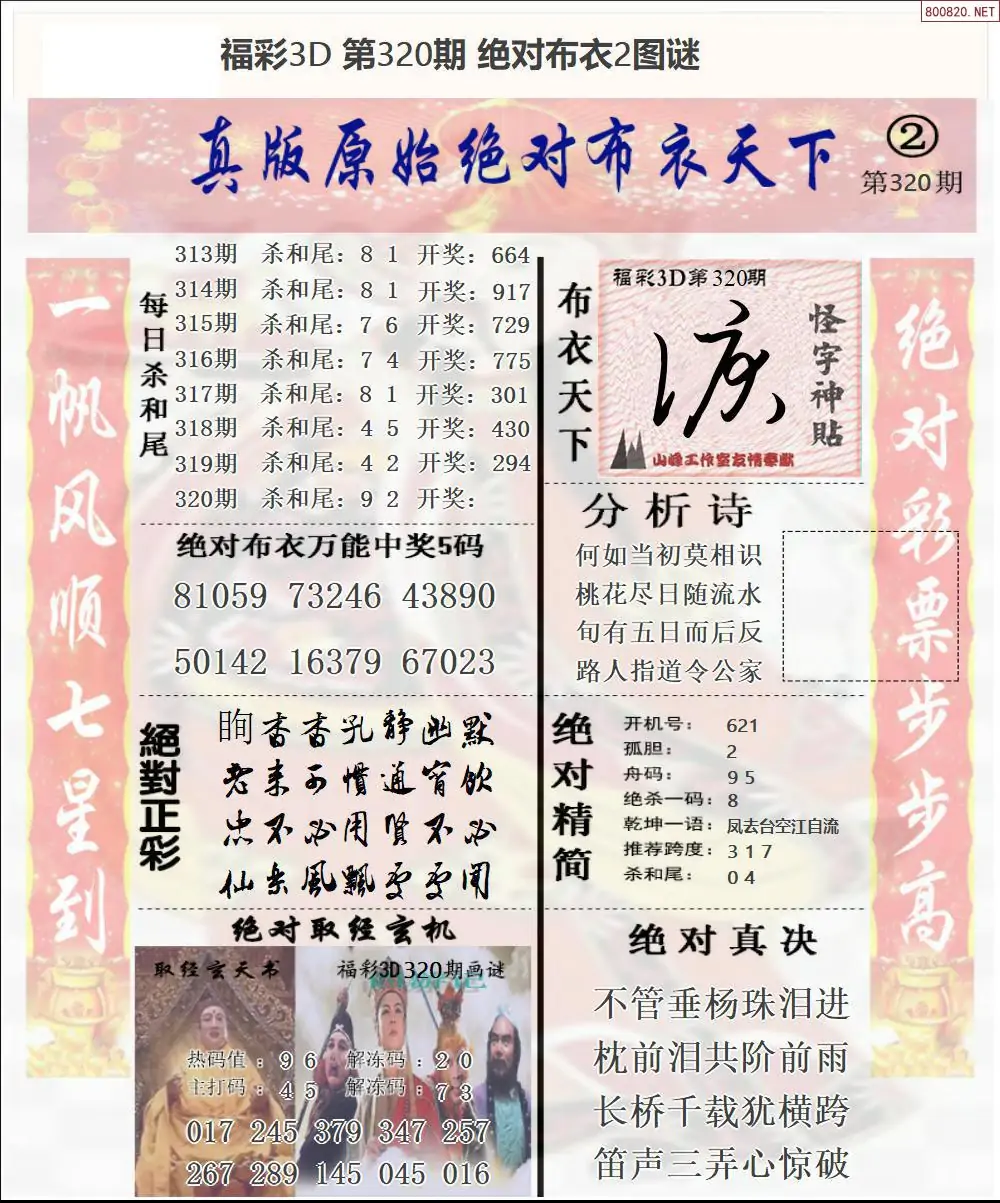 800820.NET
福彩3D 第320期 绝对布衣2图谜
真版原始绝对布衣天下
②
第320期
一帆风顺七星到
每日杀和尾
313期 杀和尾：8 1 开奖：664
314期 杀和尾：8 1 开奖：917
315期 杀和尾：7 6 开奖：729
316期 杀和尾：7 4 开奖：775
317期 杀和尾：8 1 开奖：301
318期 杀和尾：4 5 开奖：430
319期 杀和尾：4 2 开奖：294
320期 杀和尾：9 2 开奖：
绝对布衣万能中奖5码
81059 73246 43890
50142 16379 67023
絕對正彩
眴香香孔静幽默
老来不惯通宵饮
忠不必用贤不必
仙乐风飘处处闻
绝对取经玄机
取经玄天书
福彩3D320期画谜
热码值：9 6 解冻码：2 0
主打码：4 5 解冻码：7 3
017 245 379 347 257
267 289 145 045 016
布衣天下
福彩3D第320期
怪字神貼
山峰工作室友情奉献
分析诗
何如当初莫相识
桃花尽日随流水
旬有五日而后反
路人指道令公家
绝对精简
开机号： 621
孤胆： 2
舟码： 9 5
绝杀一码：8
乾坤一语：凤去台空江自流
推荐跨度：3 1 7
杀和尾： 0 4
绝对真决
不管垂杨珠泪进
枕前泪共阶前雨
长桥千载犹横跨
笛声三弄心惊破
绝对彩票步步高